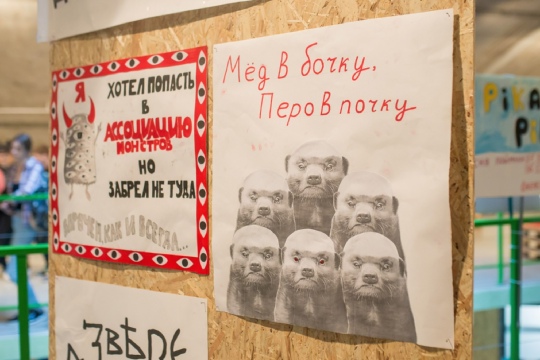 Я
ХОТЕЛ ПОПАСТЬ
В
АССОЦИАЦИЮ
МОНСТРОВ
НО
ЗАБРЕЛ НЕ ТУДА
КАК И ВСЕГДА...
Мёд в бочку,
Перо в почку
ЗВѢРЕ
PIKA
PI